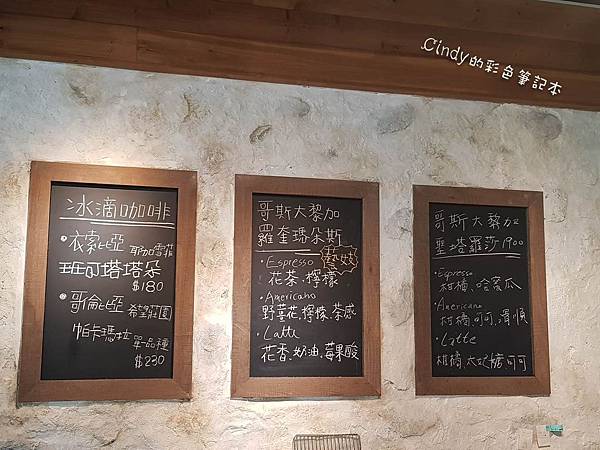 Cindy的彩色筆記本
冰滴咖啡
•衣索比亞 耶加雪菲
班可塔塔朵
$180
•哥倫比亞 希望莊園
帕卡瑪拉 單一品種
$230
哥斯大黎加
羅奎瑪朵斯
藝妓
•Espresso
花茶、檸檬
•Americano
野薑花、檸檬、茶感
•Latte
花香、奶油、莓果酸
哥斯大黎加
聖塔羅莎1900
•Espresso
柑橘、哈蜜瓜
•Americano
柑橘、可可、滑順
•Latte
柑橘、太妃糖、可可